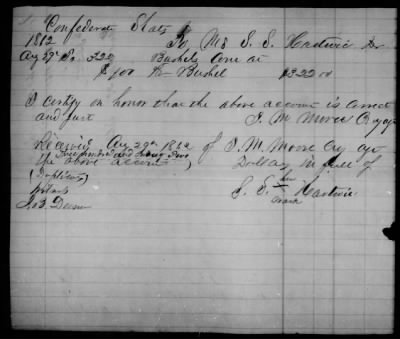 Confederate States
1862 To Mrs S. S. Hartwic Dr
Aug 29th To 322 Bushels Corn at
$1.00 Pr Bushel $322 00
I certify on honor that the above account is correct
and just
J. M. Moore Qy agt
Received Aug 29th 1862 of J. M. Moore Qy agt
Three hundred and twenty two Dollars in full of
the above account
(Duplicates)
her
S. S. Hartwic
mark